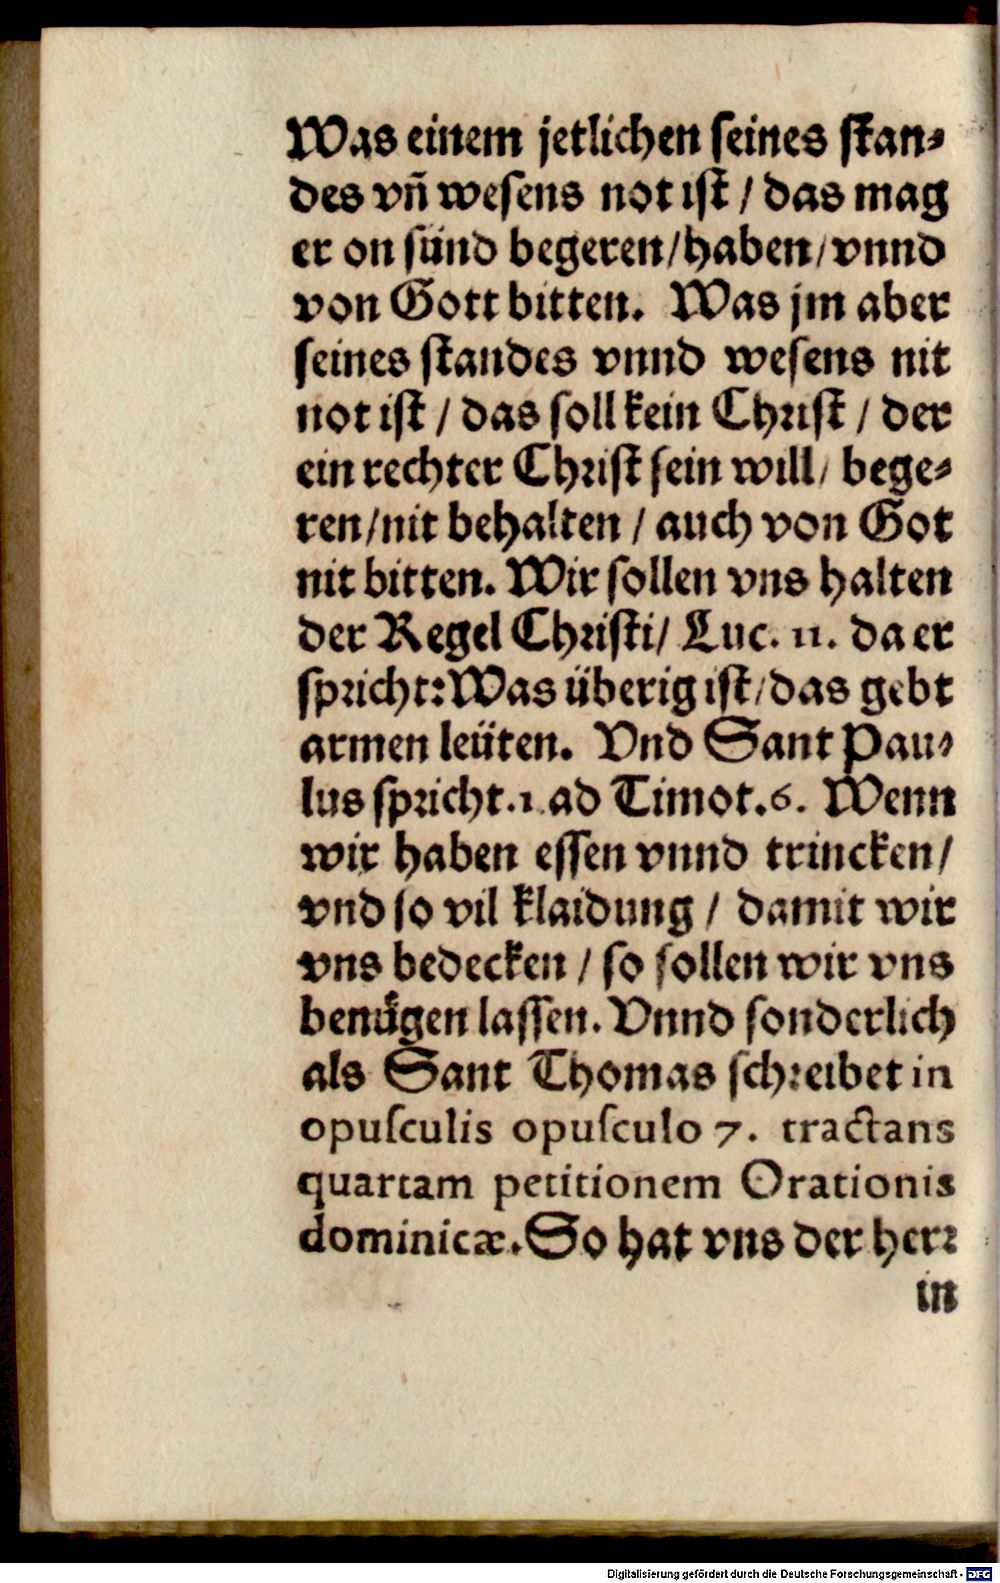 Was einem jetlichen seines stan⸗
des vñ wesens not ist / das mag
er on sünd begeren / haben / vnnd
von Gott bitten. Was jm aber
seines standes vnnd wesens nit
not ist / das soll kein Christ / der
ein rechter Christ sein will / bege⸗
ren / nit behalten / auch von Got
nit bitten. Wir sollen vns halten
der Regel Christi / Luc. 11. da er
spricht: Was überig ist / das gebt
armen leüten. Vnd Sant Pau⸗
lus spricht. 1 ad Timot. 6. Wenn
wir haben essen vnnd trincken /
vnd so vil klaidung / damit wir
vns bedecken / so sollen wir vns
benuͤgen lassen. Vnnd sonderlich
als Sant Thomas schreibet in
opusculis opusculo 7. tractans
quartam petitionem Orationis
dominicæ. So hat vns der herr
in
Digitalisierung gefördert durch die Deutsche Forschungsgemeinschaft - DFG